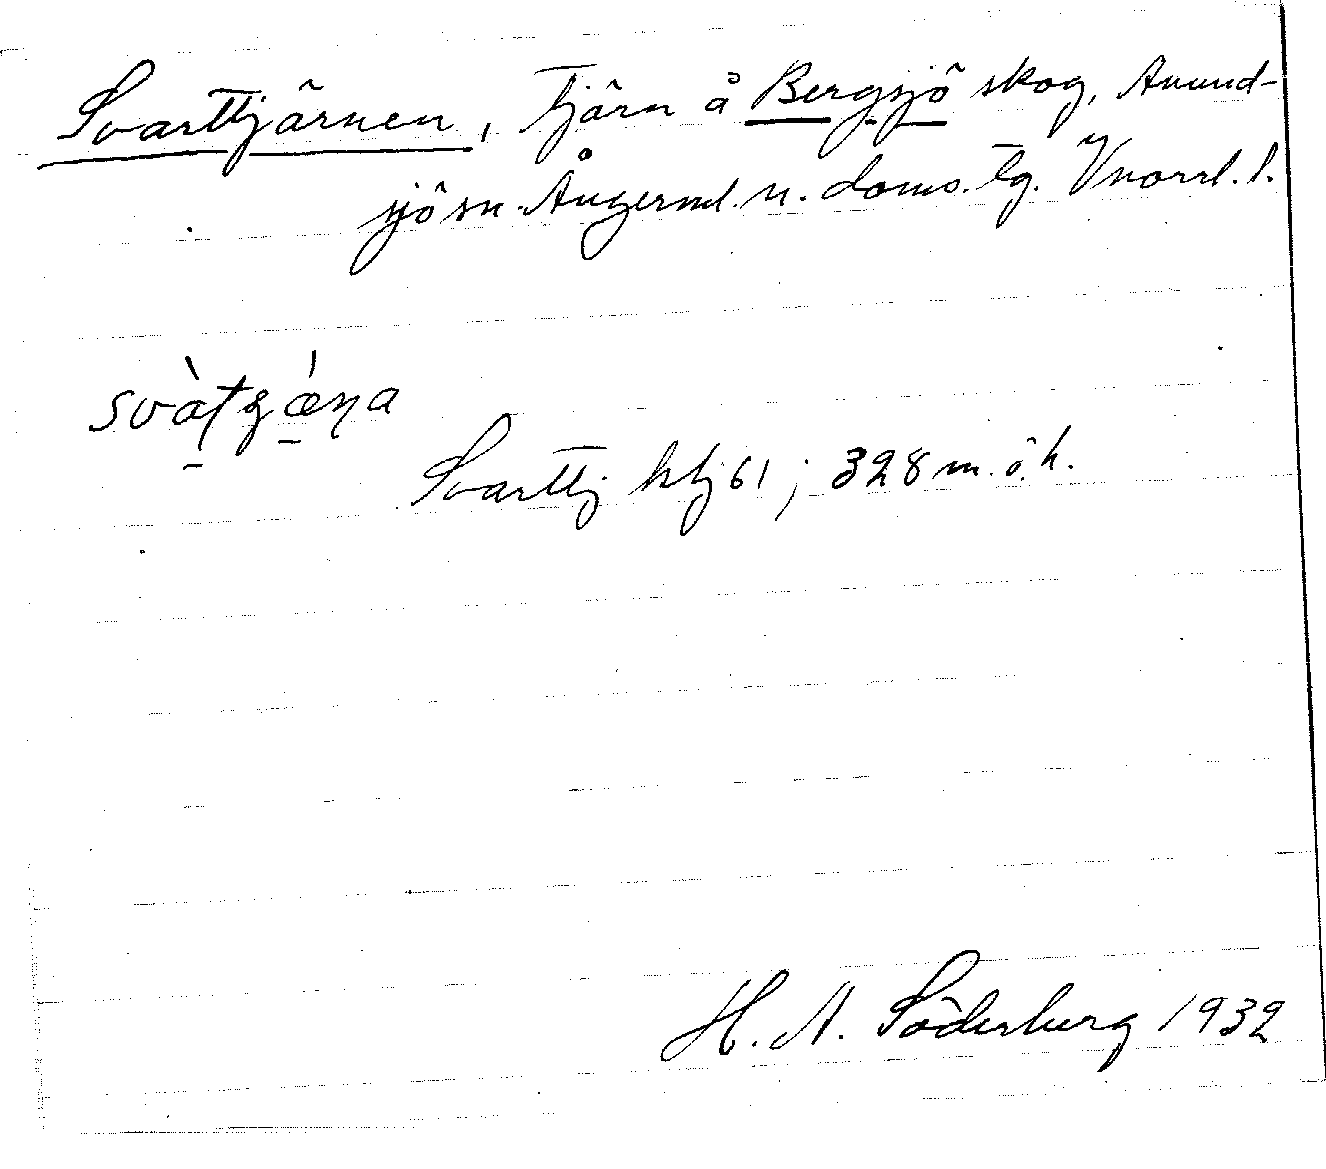 Svarttjärnen, tjärn å Bergsjö skog, Anund-
sjö sn. Ångerml. n. doms. tg. Vnorrl. l.
Svarttj hbj 61; 328 m. ö. h.
H. A. Söderberg 1932